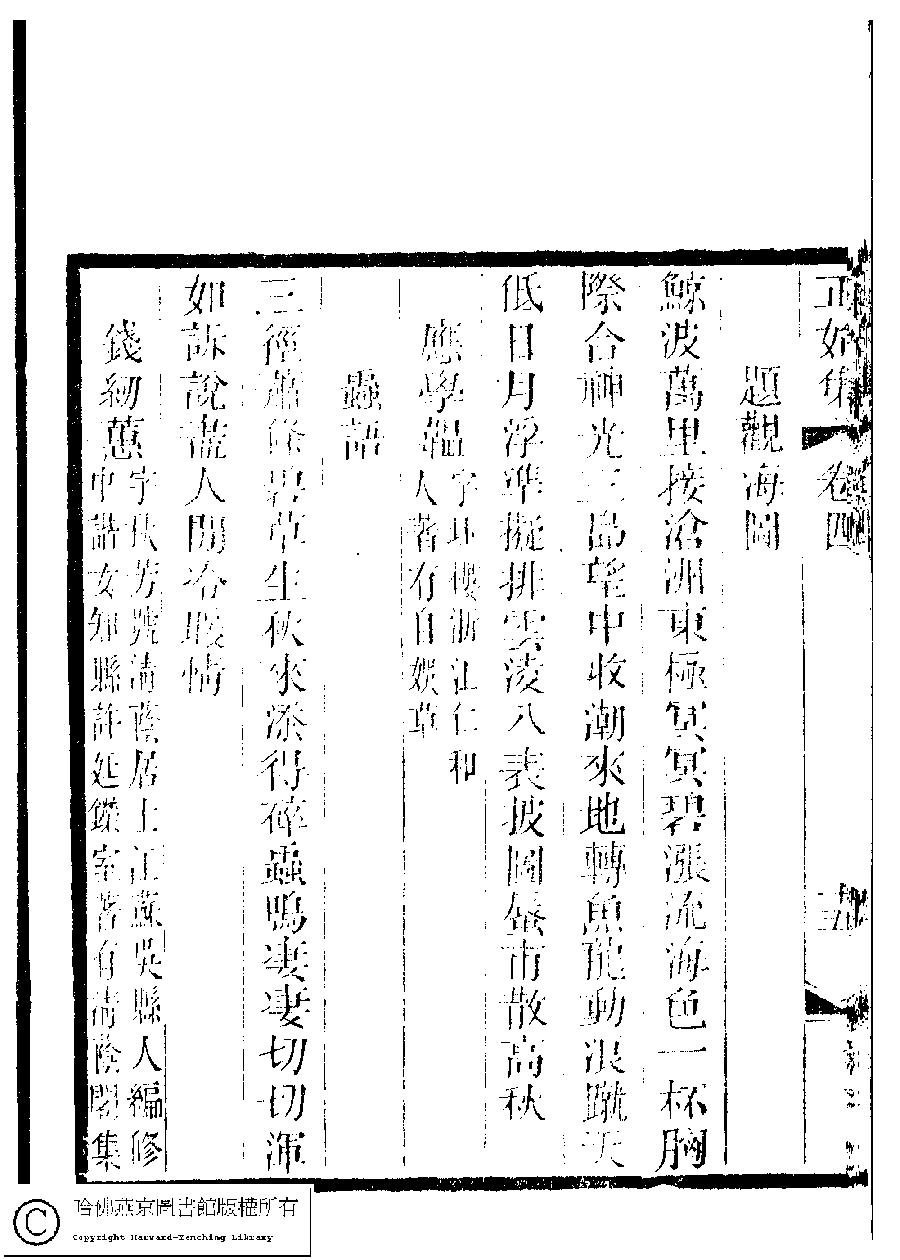 正始集 卷四
題觀海圖
鯨波萬里接滄洲東極冥冥碧漲流海色一杯胸
際合神光三島望中收潮來地轉魚龍動浪蹴天
低日月浮準擬排雲淩八表披圖蜃市散高秋
應學韞字玨樓浙江仁和
人著有自娛草
蟲語
三徑蕭條碧草生秋來添得碎蟲鳴淒淒切切渾
如訴說盡人間冷暖情
錢紉蕙字秋芳號清蔭居士江蘇吳縣人編修
中諧女知縣許延鑅室著有清蔭閣集
哈佛燕京圖書館版權所有
Copyright Harvard-Yenching Library